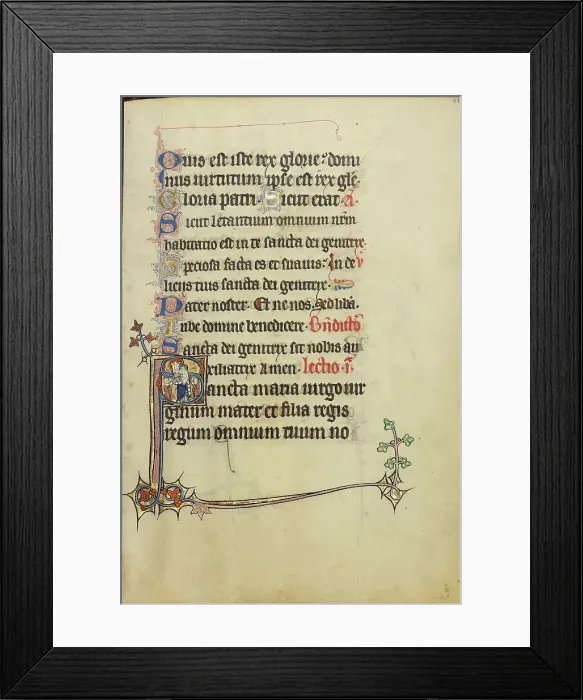 Quis est iste rex glorie: domi
nus uirtutum ipse est rex glē.
Gloria patri. Sicut erat. a
Sicut letantium omnium nrm̄
habitatio est in te sancta dei genitrix.
Speciosa facta es et suauis: In de
liciis tuis sancta dei genitrix.
Pater noster. Et ne nos. Sed liba.
Iube domine benedicere. Bn̄dictō
Sancta dei genitrix sit nobis au
xiliatrix Amen. lectio .i.
Sancta maria uirgo uir
ginum mater et filia regis
regum omnium tuum no